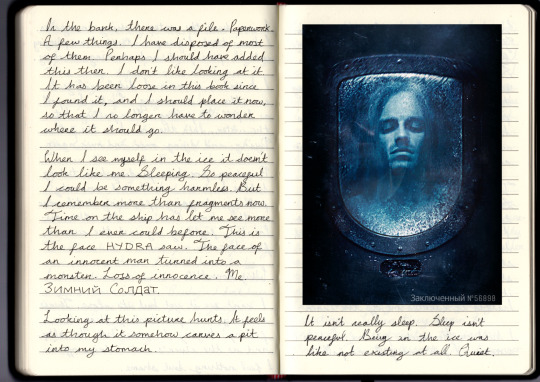 In the bank, there was a file. Paperwork.
A few things. I have disposed of most
of them. Perhaps I should have added
this then. I don't like looking at it.
It has been loose in this book since
I found it, and I should place it now,
so that I no longer have to wonder
where it should go.
When I see myself in the ice it doesn't
look like me. Sleeping. So peaceful
I could be something harmless. But
I remember more than fragments now.
Time on the ship has let me see more
than I ever could before. This is
the face HYDRA saw. The face of
an innocent man turned into a
monster. Loss of innocence. Me.
Зимний Солдат.
Looking at this picture hurts. It feels
as though it somehow carves a pit
into my stomach.
Заключенный №58898
It isn't really sleep. Sleep isn't
peaceful. Being in the ice was
like not existing at all. Quiet.